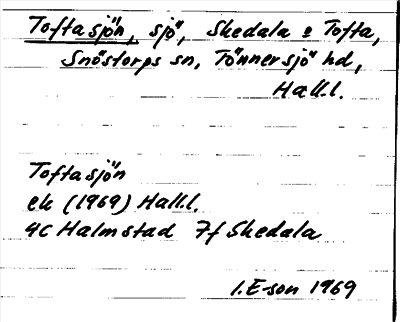 Toftasjön, sjö, Skedala o Tofta,
Snöstorps sn, Tönnersjö hd,
Hall.l.
Toftasjön
ek (1969) Hall.l.
4C Halmstad 7f Skedala
I.E-son 1969